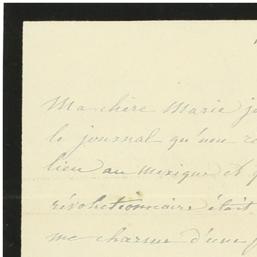 Ma chère Marie j
le journal qu'une r
lieu au Mexique et q
révolutionnaire était
me charme d'une